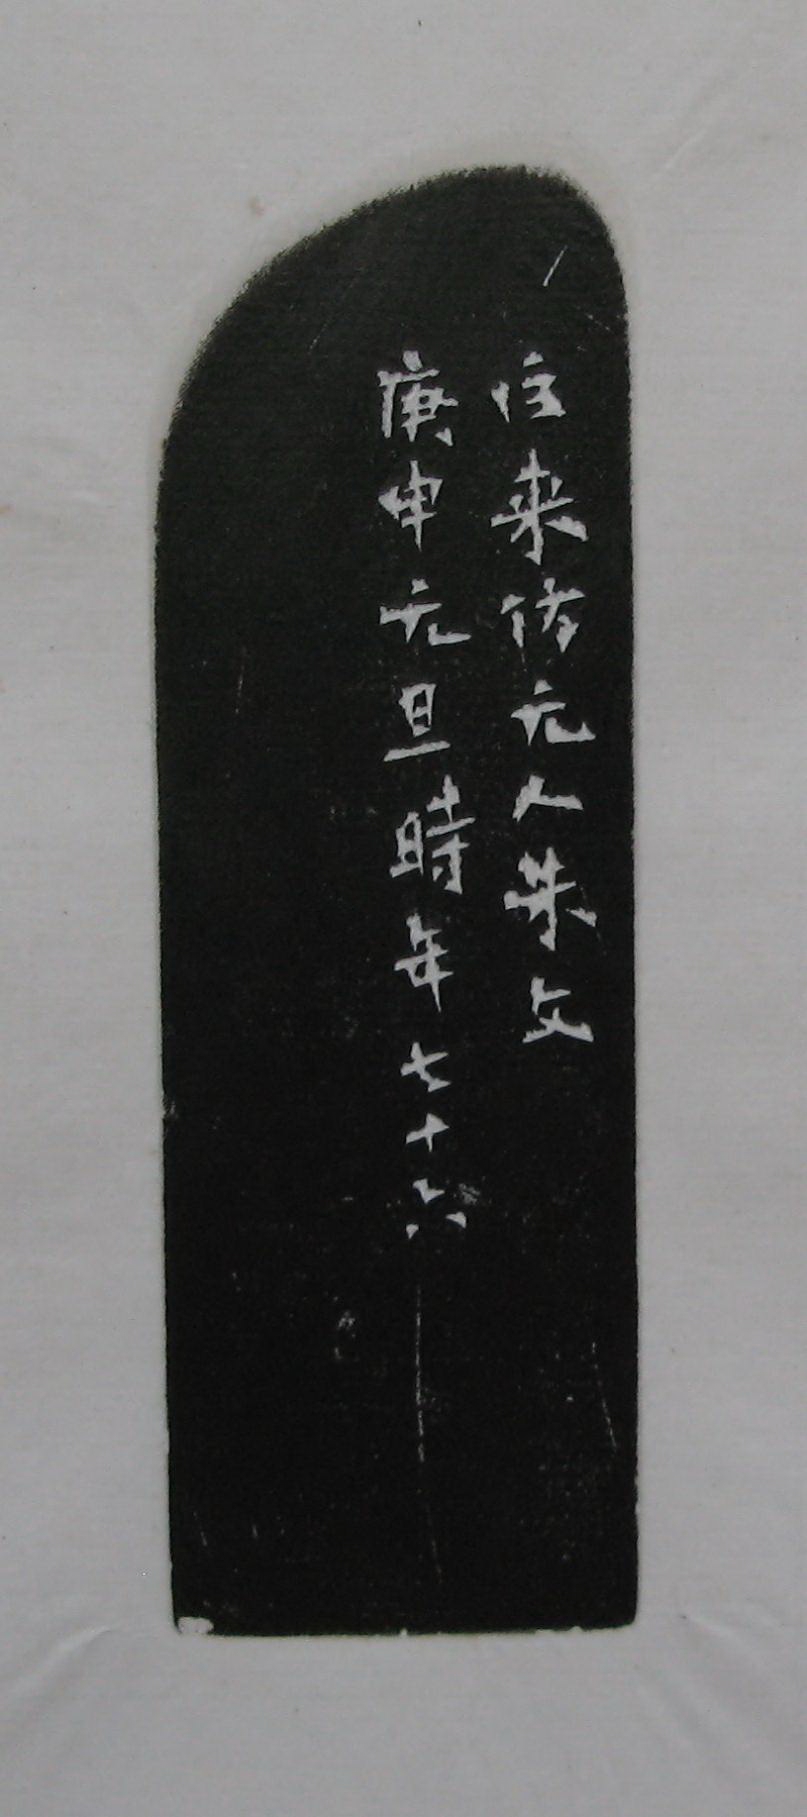 巨来仿元人朱文
庚申元旦時年七十六